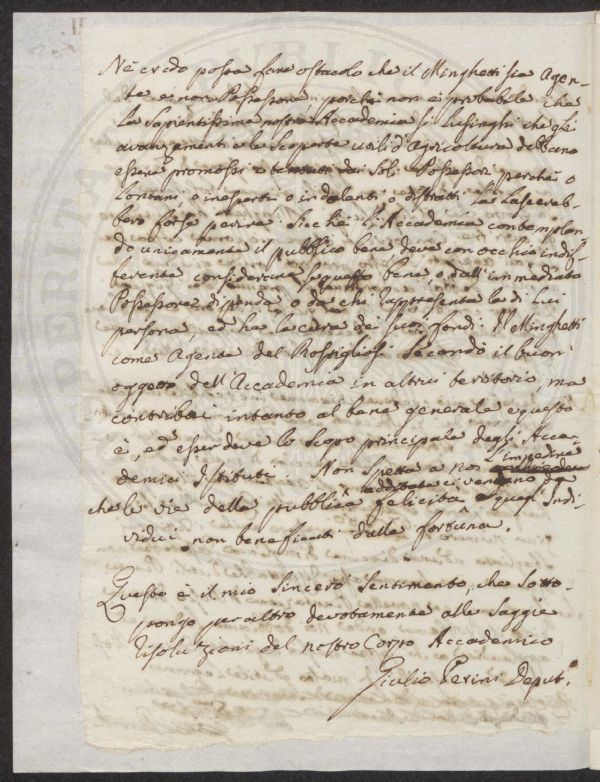 Nè credo possa fare ostacolo che il Minghetti sia Agen-
te e non Possessore, perchè non è probabile che
la Sapientissima nostra Accademia si lusinghi che gli
avanzamenti e le scoperte utili d'Agricoltura debbano
essere promossi e tentati dai soli Possessori perchè o
lontani, o inesperti o indolenti, o distratti la lascereb-
bero forse perire sicchè l'Accademia contemplan
do unicamente il pubblico bene deve con occhio indif-
ferente considerare se questo bene, o dall'immediato
Possessore dipenda, o da chi rappresenta la di lui
persona, ed ha la cura de suoi fondi. Il Minghetti
come Agente del Rospigliosi secondò il buon
oggetto dell'Accademia in altrui territorio, ma
contribuì intanto al bene generale, e questo
è, ed esser deve lo scopo principale degli Acca-
demici Istituti. Non spetta a noi l'impedire
che le vie della pubblica felicità additate ci vengano da quegl'Indi-
vidui non beneficati dalla fortuna.
Questo è il mio sincero sentimento, che sotto-
pongo per altro devotamente alle saggie
risoluzioni del nostro Corpo Accademico
Giulio Perini Deput.º